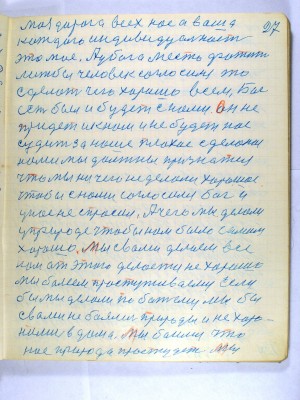 моя дорога всех нас а ваша 27
каждого индивидуальность
это мое. А у Бога место
лишь бы человек согласился это
сделать чего хорошо всем, Бог
есть был и будет с нами. Он не
придет к нам и не будет нас
судить за наше плохое сделаное
нами мы должны признатся
что мы ничего не делали хорошое
чтобы с нами согласился Бог и
у нас не спросил. А чего мы делали
у природе чтобы нам было самим
хорошо. Мы с вами делаем все
нам от этого делается не хорошо
мы болеем простуживаемся если
бы мы делали по батькому мы бы
с вами не болели природы и не хоро-
нили в дома. Мы боимся это
нас природа простудит Мы